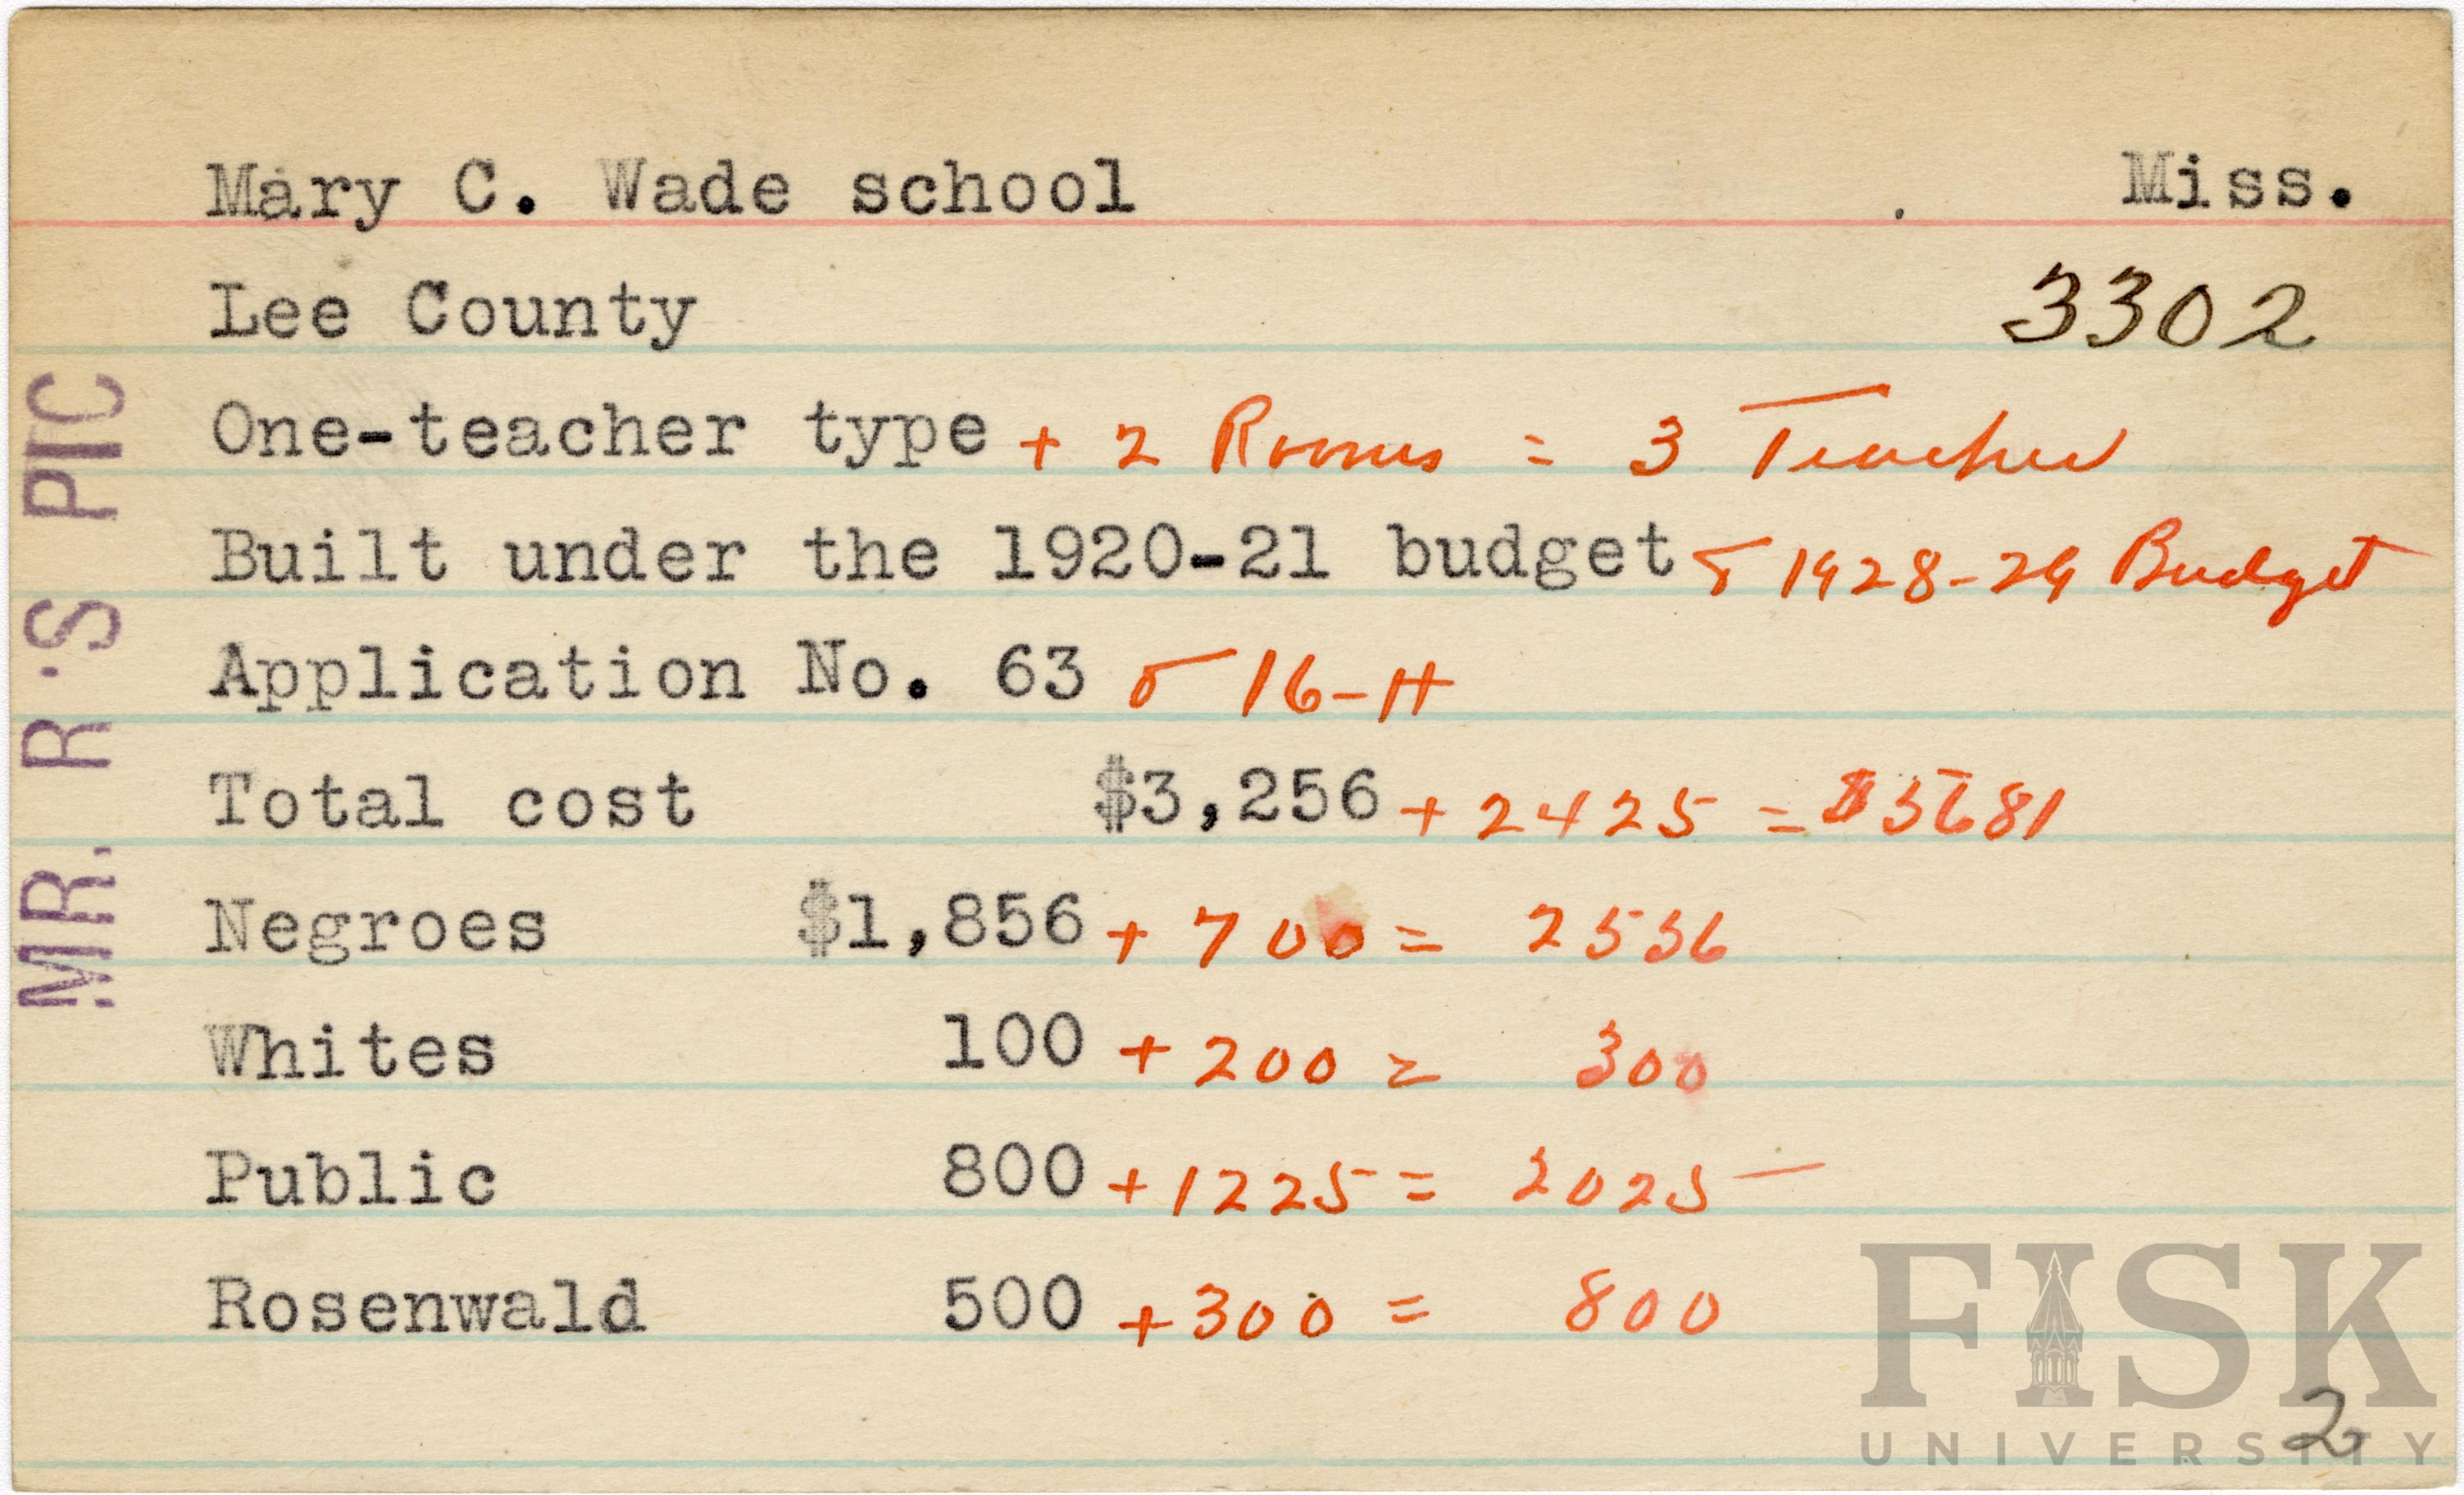 Mary C. Wade school Miss.
Lee County 3302
One-teacher type + 2 Rooms = 3 Teacher
Built under the 1920-21 budget & 1928-29 Budget
Application No. 63 & 16-H
Total cost $3,256 + 2425 = $5681
Negroes $1,856 + 700 = 2556
Whites 100 + 200 = 300
Public 800 + 1225 = 2025
Rosenwald 500 + 300 = 800
MR. R·S PIC
FISK
UNIVERSITY
2